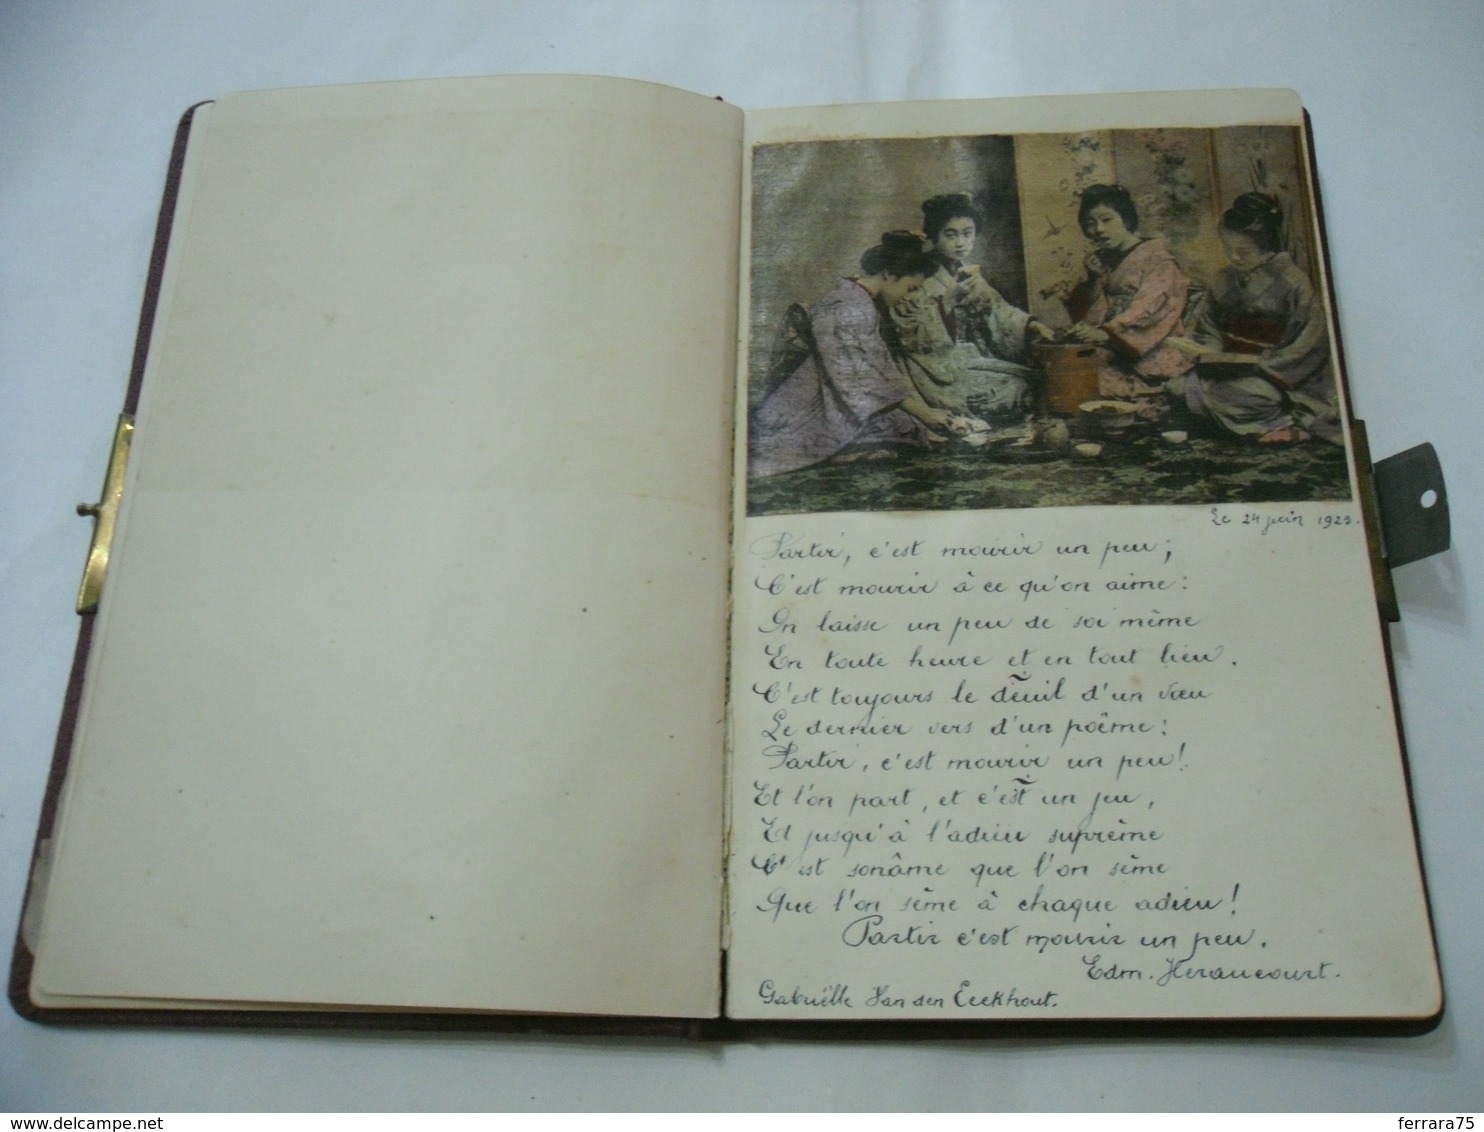 Le 24 juin 1923.
Partir, c'est mourir un peu;
C'est mourir à ce qu'on aime:
On laisse un peu de soi même
En toute heure et en tout lieu.
C'est toujours le deuil d'un vœu
Le dernier vers d'un poème:
Partir, c'est mourir un peu!
Et l'on part, et c'est un jeu,
Et jusqu'à l'adieu suprême
C'est sonâme que l'on sème
Que l'on sème à chaque adieu!
Partir c'est mourir un peu.
Edm. Heraucourt.
Gabriëlle Van den Eeckhout.
ferrara75
delcampe.net